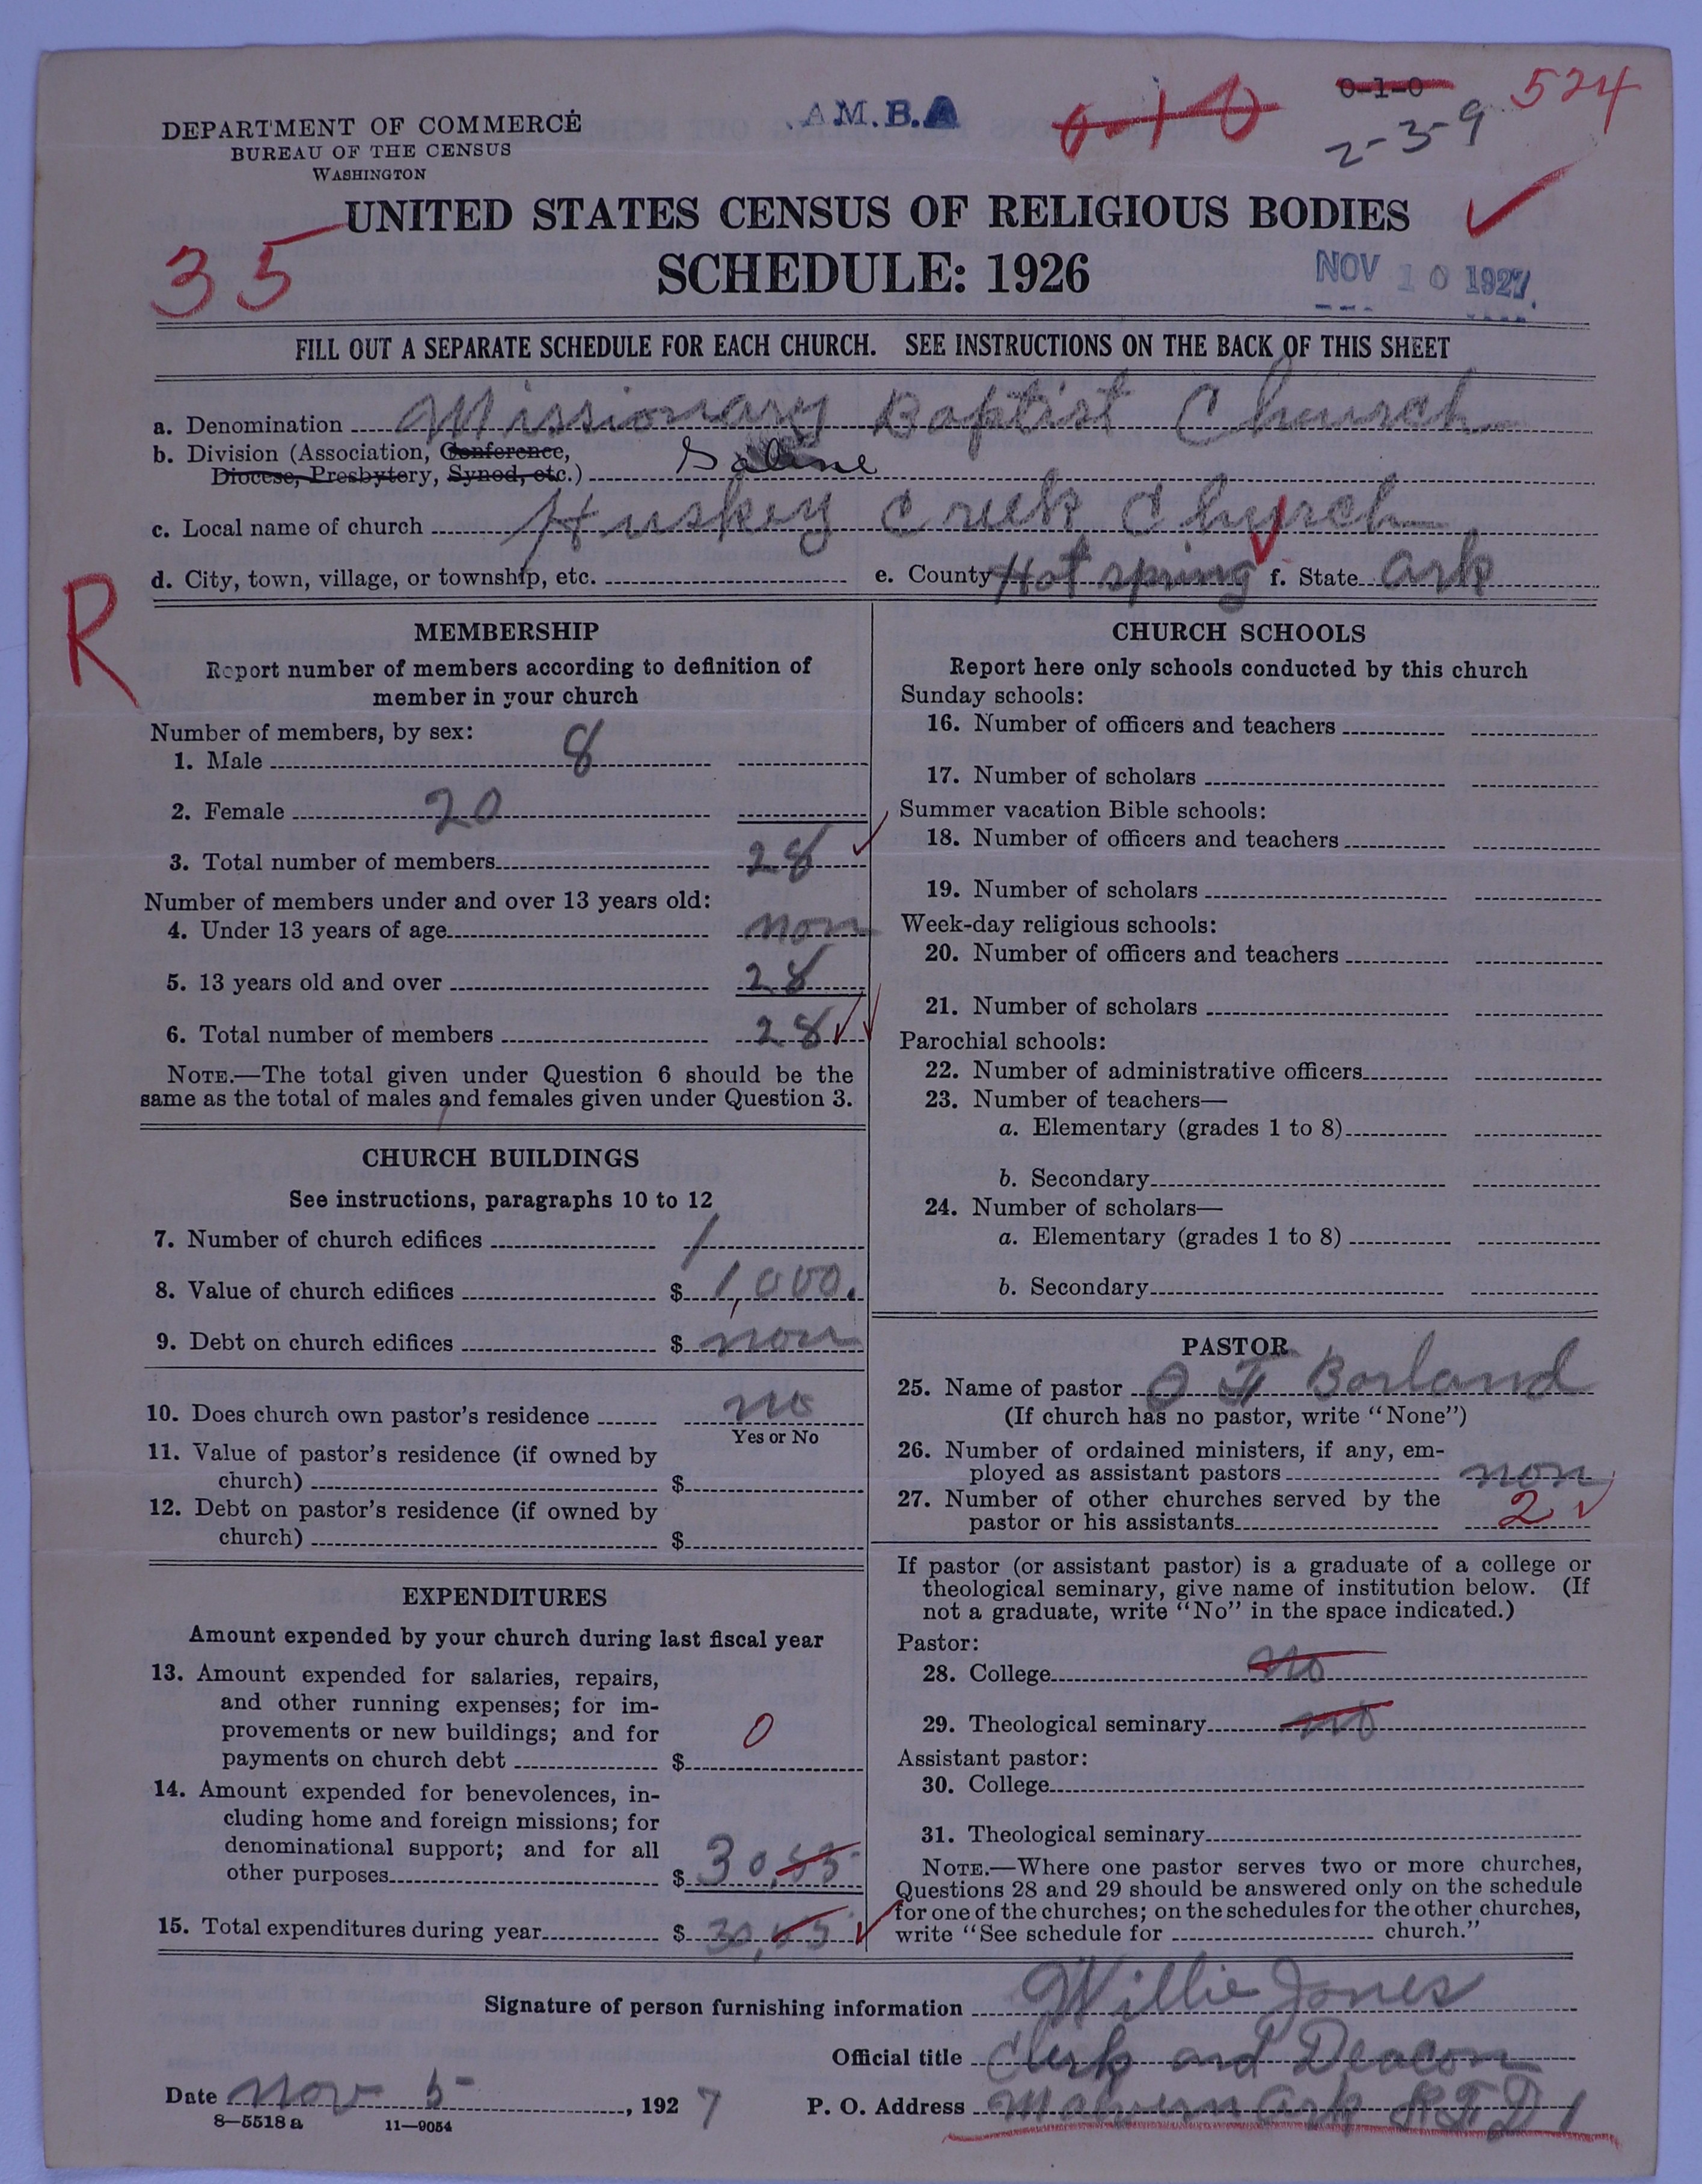 A.M.B.A
0-1-0
0-1-0
524
2-3-9
DEPARTMENT OF COMMERCE
BUREAU OF THE CENSUS
WASHINGTON
UNITED STATES CENSUS OF RELIGIOUS BODIES
SCHEDULE: 1926
35
NOV 10 1927
FILL OUT A SEPARATE SCHEDULE FOR EACH CHURCH. SEE INSTRUCTIONS ON THE BACK OF THIS SHEET
a. Denomination Missionary Baptist Church
b. Division (Association, Conference,
Diocese, Presbytery, Synod, etc.) Saline
c. Local name of church Huskey Creek Church
d. City, town, village, or township, etc. e. County Hot spring f. State Ark
R
MEMBERSHIP
Report number of members according to definition of
member in your church
Number of members, by sex:
1. Male 8
2. Female 20
3. Total number of members 28
Number of members under and over 13 years old:
4. Under 13 years of age non
5. 13 years old and over 28
6. Total number of members 28
NOTE.—The total given under Question 6 should be the
same as the total of males and females given under Question 3.
CHURCH BUILDINGS
See instructions, paragraphs 10 to 12
7. Number of church edifices 1
8. Value of church edifices $ 1,000.
9. Debt on church edifices $ non
10. Does church own pastor's residence no
Yes or No
11. Value of pastor's residence (if owned by
church) $
12. Debt on pastor's residence (if owned by
church) $
EXPENDITURES
Amount expended by your church during last fiscal year
13. Amount expended for salaries, repairs,
and other running expenses; for im-
provements or new buildings; and for
payments on church debt $ 0
14. Amount expended for benevolences, in-
cluding home and foreign missions; for
denominational support; and for all
other purposes $ 30,
15. Total expenditures during year $ 30,
CHURCH SCHOOLS
Report here only schools conducted by this church
Sunday schools:
16. Number of officers and teachers
17. Number of scholars
Summer vacation Bible schools:
18. Number of officers and teachers
19. Number of scholars
Week-day religious schools:
20. Number of officers and teachers
21. Number of scholars
Parochial schools:
22. Number of administrative officers
23. Number of teachers—
a. Elementary (grades 1 to 8)
b. Secondary
24. Number of scholars—
a. Elementary (grades 1 to 8)
b. Secondary
PASTOR
25. Name of pastor O F Borland
(If church has no pastor, write "None")
26. Number of ordained ministers, if any, em-
ployed as assistant pastors non
27. Number of other churches served by the
pastor or his assistants 2
If pastor (or assistant pastor) is a graduate of a college or
theological seminary, give name of institution below. (If
not a graduate, write "No" in the space indicated.)
Pastor:
28. College no
29. Theological seminary no
Assistant pastor:
30. College
31. Theological seminary
NOTE.—Where one pastor serves two or more churches,
Questions 28 and 29 should be answered only on the schedule
for one of the churches; on the schedules for the other churches,
write "See schedule for church."
Signature of person furnishing information Willie Jones
Official title Clerk and Deacon
Date Nov 5, 1927 P. O. Address Malvern Ark R F D 1
8—5518 a 11—9054